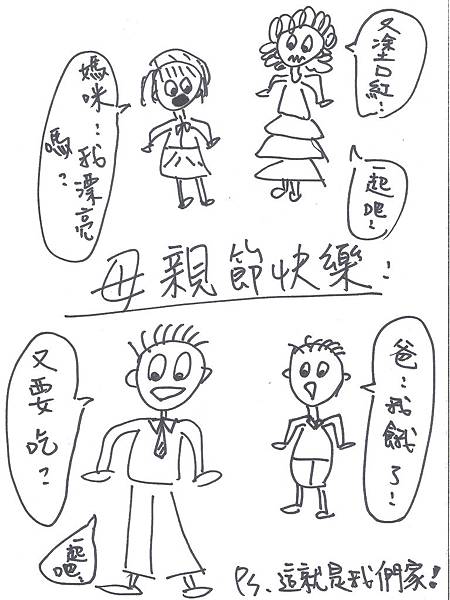 媽咪!我漂亮
嗎?
又塗口紅!
一起吧!
母親節快樂!
爸!我餓了!
又要吃?
一起吧!
Ps. 這就是我們家!